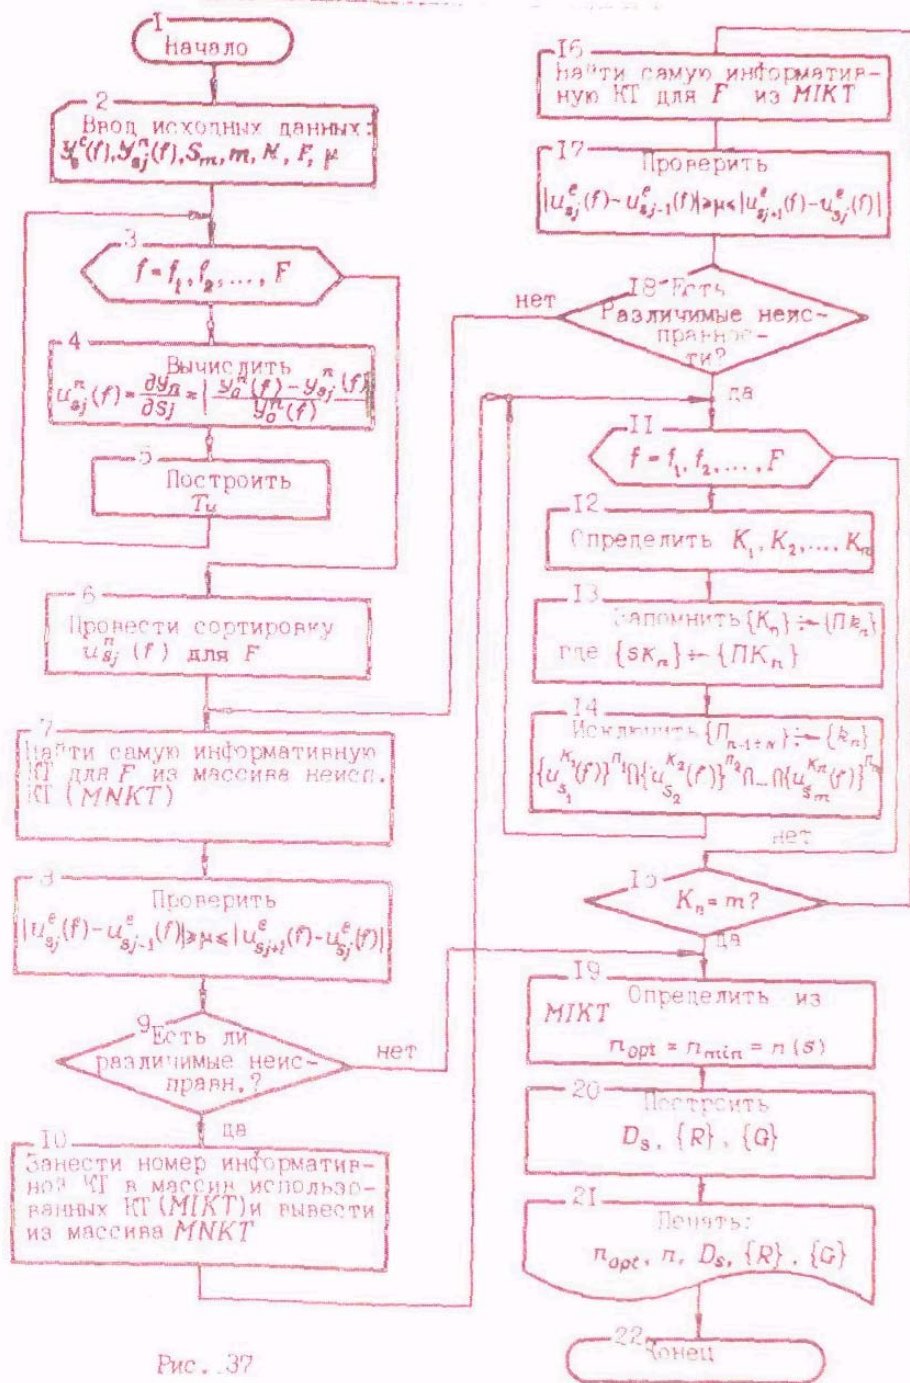 1
Начало
2
Ввод исходных данных:
f = f₁, f₂, ..., F
3
4
Вычислить
5
Построить
Tu
6
Провести сортировку
u_{sj}^n (f) для F
7
Найти самую информативную
КТ для F из массива неисп.
КТ (MNKT)
8
Проверить
|u_{sj}^e(f) - u_{sj-1}^e(f)| ≥ μ ≤ |u_{sj+1}^e(f) - u_{sj}^e(f)|
9 Есть ли
различимые неис-
правн.?
нет
да
10
Занести номер информатив-
ной КТ в массив использо-
ванных КТ (MIKT) и вывести
из массива MNKT
Рис. 37
16
Найти самую информатив-
ную КТ для F из MIKT
17
Проверить
|u_{sj}^e(f) - u_{sj-1}^e(f)| ≥ μ ≤ |u_{sj+1}^e(f) - u_{sj}^e(f)|
18 Есть
Различимые неис-
правнос-
ти?
нет
да
11
f = f₁, f₂, ..., F
12
Определить K₁, K₂, ..., Kₙ
13
Запомнить
где
14
Исключить
нет
15
Kₙ = m?
да
19
Определить из
MIKT
n_{opt} = n_{min} = n(s)
20
Построить
D_s, {R}, {G}
21
Печать:
n_{opt}, n, D_s, {R}, {G}
22
Конец